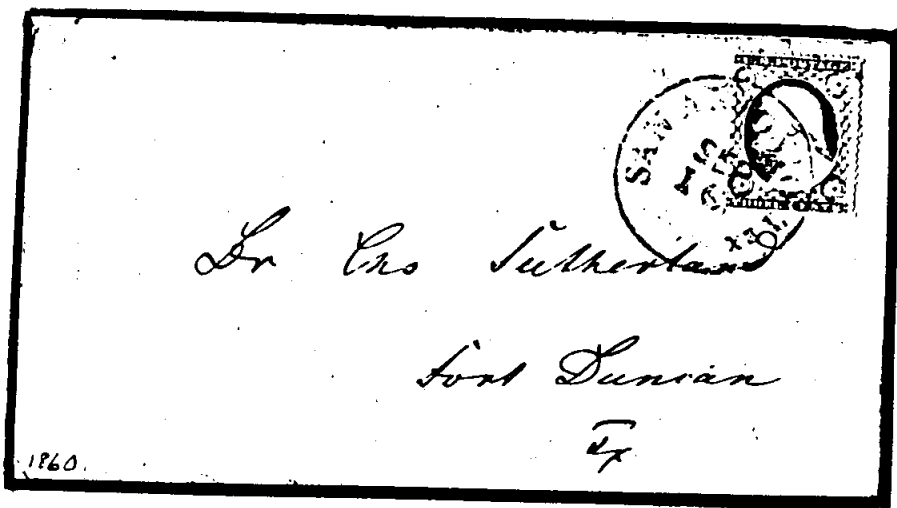 SAN A
TEX
Dr Chs Sutherland
Fort Duncan
Tx
1860.